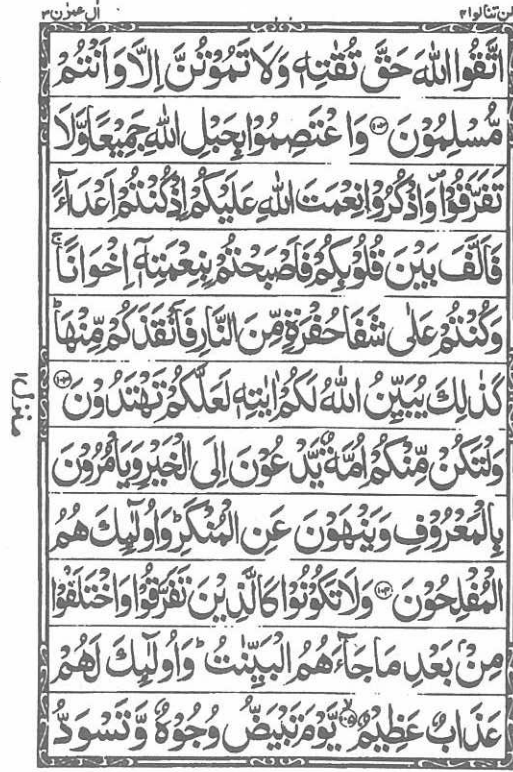 لن تنالوا ۴ اٰل عمرٰن ۳
اتَّقُوا اللّٰهَ حَقَّ تُقٰتِهٖ وَلَا تَمُوْتُنَّ اِلَّا وَاَنْتُمْ
مُّسْلِمُوْنَ ﴿۱۰۲﴾ وَاعْتَصِمُوْا بِحَبْلِ اللّٰهِ جَمِيْعًا وَّلَا
تَفَرَّقُوْا ۪ وَاذْكُرُوْا نِعْمَتَ اللّٰهِ عَلَيْكُمْ اِذْ كُنْتُمْ اَعْدَآءً
فَاَلَّفَ بَيْنَ قُلُوْبِكُمْ فَاَصْبَحْتُمْ بِنِعْمَتِهٖٓ اِخْوَانًا ۚ
وَكُنْتُمْ عَلٰى شَفَا حُفْرَةٍ مِّنَ النَّارِ فَاَنْقَذَكُمْ مِّنْهَا ؕ
كَذٰلِكَ يُبَيِّنُ اللّٰهُ لَكُمْ اٰيٰتِهٖ لَعَلَّكُمْ تَهْتَدُوْنَ ﴿۱۰۳﴾
وَلْتَكُنْ مِّنْكُمْ اُمَّةٌ يَّدْعُوْنَ اِلَى الْخَيْرِ وَيَاْمُرُوْنَ
بِالْمَعْرُوْفِ وَيَنْهَوْنَ عَنِ الْمُنْكَرِ ؕ وَاُولٰٓئِكَ هُمُ
الْمُفْلِحُوْنَ ﴿۱۰۴﴾ وَلَا تَكُوْنُوْا كَالَّذِيْنَ تَفَرَّقُوْا وَاخْتَلَفُوْا
مِنْۢ بَعْدِ مَا جَآءَهُمُ الْبَيِّنٰتُ ؕ وَاُولٰٓئِكَ لَهُمْ
عَذَابٌ عَظِيْمٌ ﴿۱۰۵﴾ۙ يَّوْمَ تَبْيَضُّ وُجُوْهٌ وَّتَسْوَدُّ
منزل ۱